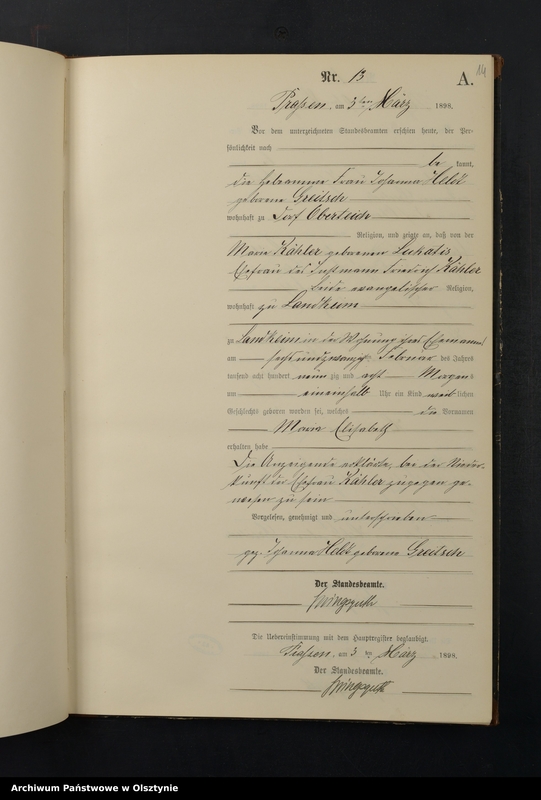 14
Nr. 13
A.
Prassen, am 3ten März 1898.
Vor dem unterzeichneten Standesbeamten erschien heute, der Per-
sönlichkeit nach
be kannt,
die Hebamme Frau Johanna Held
geborene Greitsch
wohnhaft zu Dorf Oberteich
Religion, und zeigte an, daß von der
Marie Kähler geborenen Lukatis
Ehefrau des Instmann Friedrich Kähler
beide evangelischer Religion,
wohnhaft zu Landkeim
zu Landkeim in der Wohnung ihres Ehemannes
am sechsundzwanzig Februar des Jahres
tausend acht hundert neunzig und acht Morgens
um eineinhalb Uhr ein Kind weiblichen
Geschlechts geboren worden sei, welches die Vornamen
Marie Elisabeth
erhalten habe
Die Anzeigende erklärte, bei der Nieder-
kunft der Ehefrau Kähler zugegen ge-
wesen zu sein
Vorgelesen, genehmigt und unterschrieben
gez. Johanna Held geborene Greitsch
Der Standesbeamte.
Die Uebereinstimmung mit dem Hauptregister beglaubigt.
Prassen, am 3 ten März 1898.
Der Standesbeamte.
Archiwum Państwowe w Olsztynie